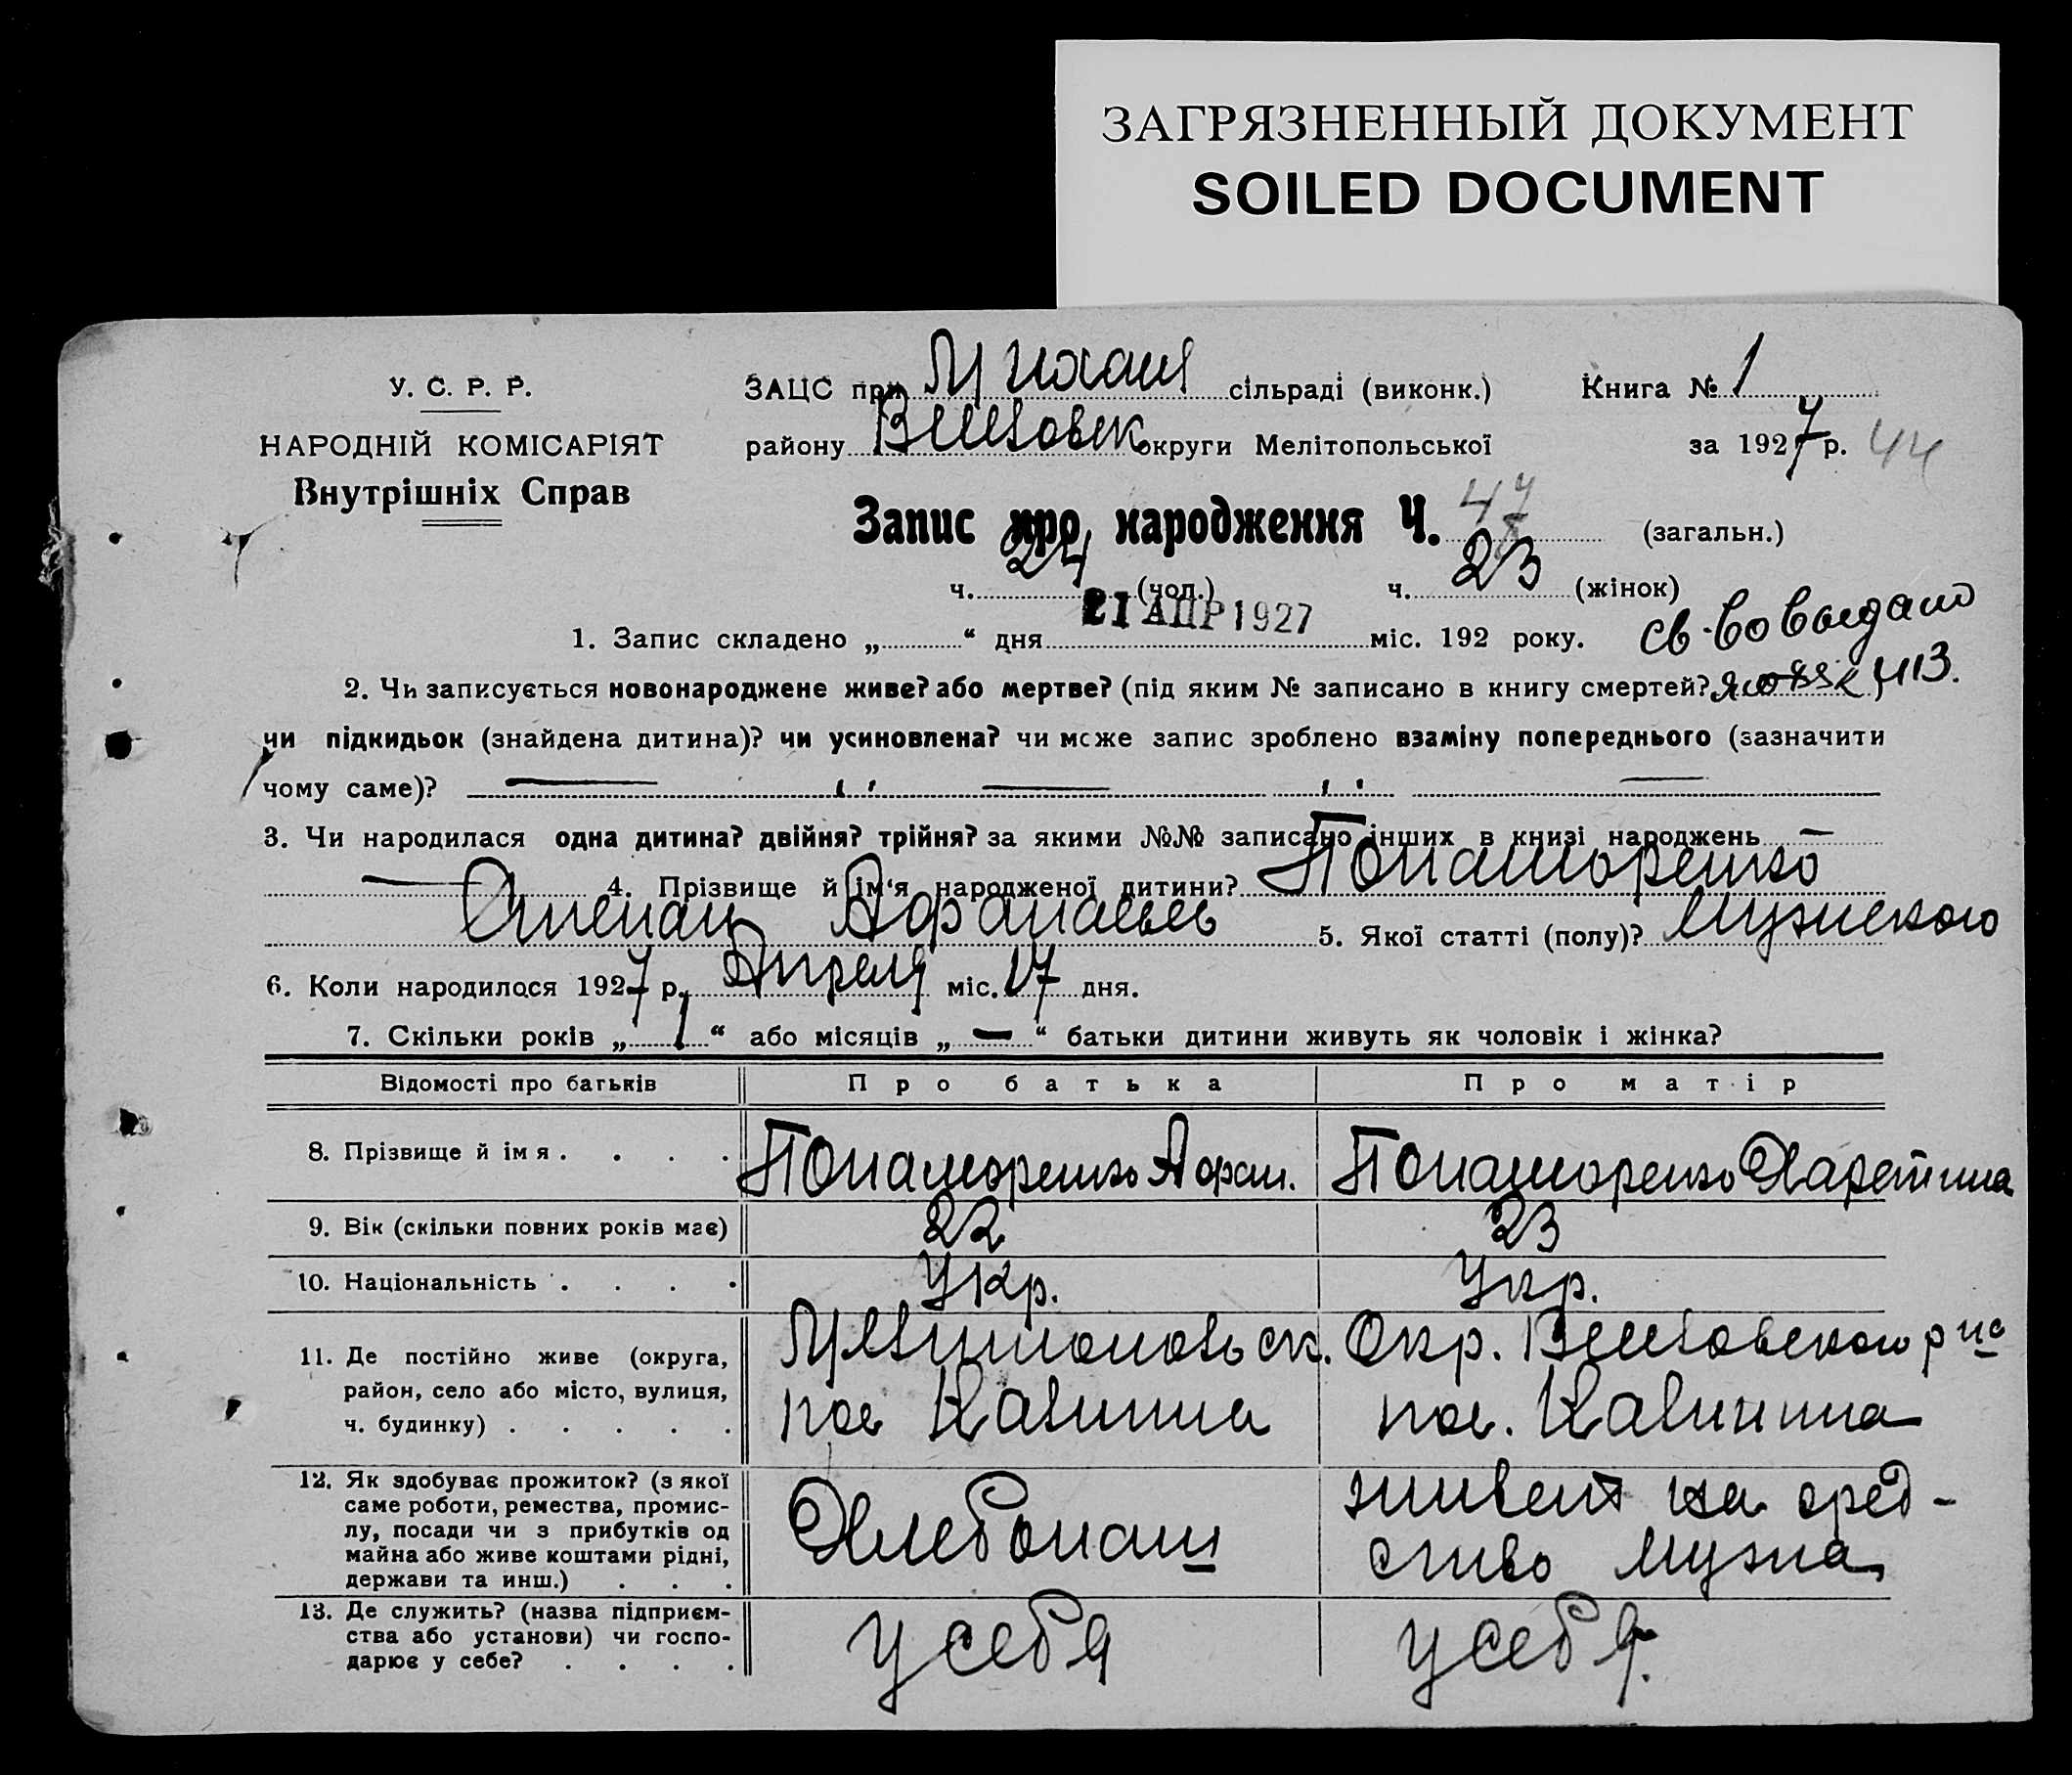 ЗАГРЯЗНЕННЫЙ ДОКУМЕНТ
SOILED DOCUMENT
У. С. Р. Р.
НАРОДНІЙ КОМІСАРІЯТ
Внутрішніх Справ
ЗАЦС при Михайл сільраді (виконк.)
району Веселовск округи Мелітопольської
Книга № 1
за 1927 р. 44
Запис про народження Ч. 47 (загальн.)
ч. 24 (чол.) ч. 23 (жінок)
1. Запис складено „ “ дня 21 АПР 1927 міс. 192 року.
св-во выдано
2. Чи записується новонароджене живе? або мертве? (під яким № записано в книгу смертей? 413.
чи підкидьок (знайдена дитина)? чи усиновлена? чи може запис зроблено взаміну попереднього (зазначити
чому саме)? — „ — „ —
3. Чи народилася одна дитина? двійня? трійня? за якими №№ записано інших в книзі народжень —
— 4. Прізвище й ім‘я народженої дитини? Понаморенко
Степан Афанасьев 5. Якої статті (полу)? Мужского
6. Коли народилося 1927 р. Апреля міс. 17 дня.
7. Скільки років „ 1 “ або місяців „ — “ батьки дитини живуть як чоловік і жінка?
Відомості про батьків Про батька Про матір
8. Прізвище й імя . . . . Понаморенко Афан. Понаморенко Харетина
9. Вік (скільки повних років має) 22 23
10. Національність . . . . Укр. Укр.
11. Де постійно живе (округа,
район, село або місто, вулиця,
ч. будинку) . . . . .
Мелитопольск. Окр. Веселовского р на
пос Калинина пос. Калинина
12. Як здобуває прожиток? (з якої
саме роботи, ремества, промис-
лу, посади чи з прибутків од
майна або живе коштами рідні,
держави та инш.) . . .
Хлебопаш
живет на сред-
ство мужа
13. Де служить? (назва підприєм-
ства або установи) чи госпо-
дарює у себе? . . . .
у себя у себя.